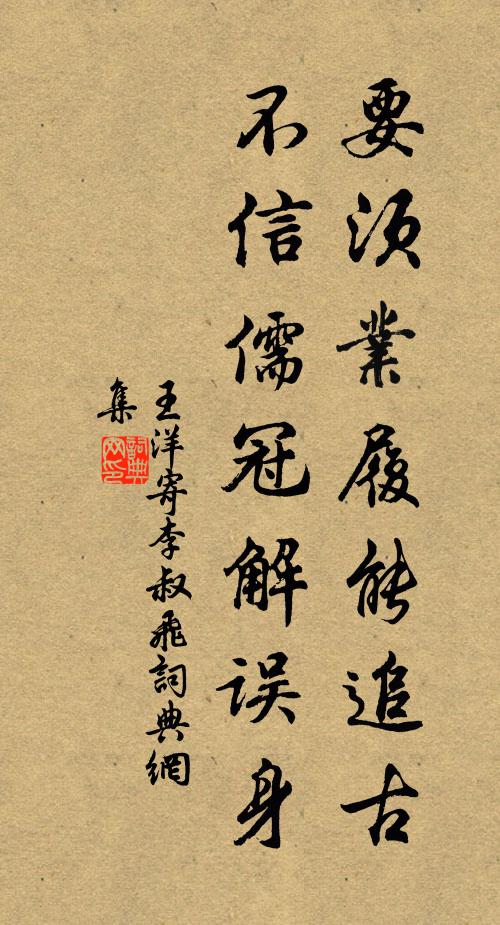 要须業履能追古
不信儒冠解误身
王洋寄李叔飛詞典網
集
詞典
网印